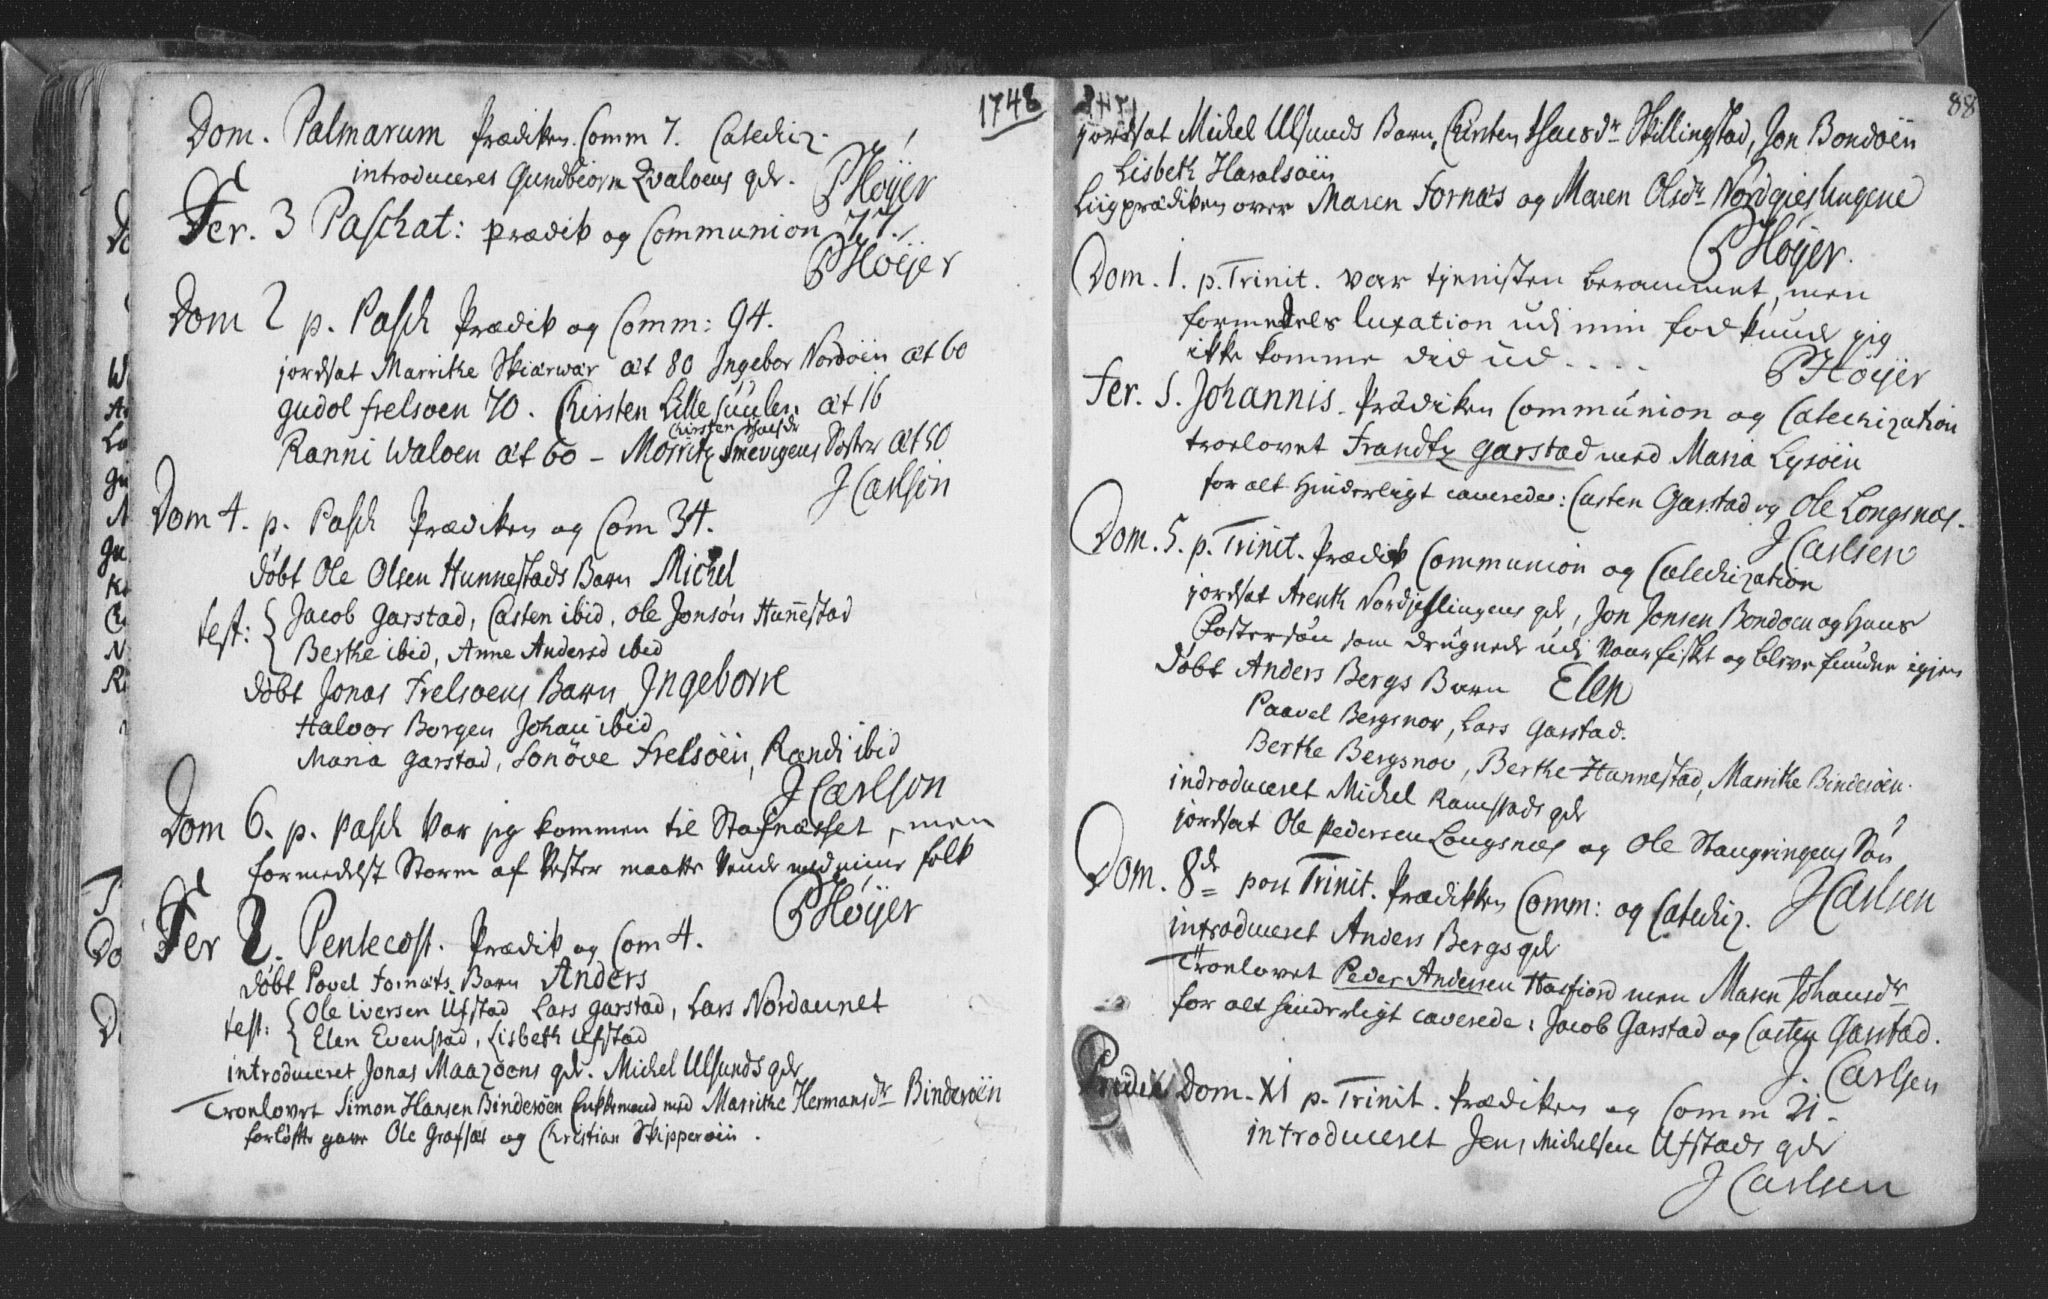 1748
Dom. Palmarum Prædiken Comm 7. Catechiz.
introduceret Gundbiorn Qvaloens qdr. PHøyer
Fer. 3 Paschat: prædik og Communion 77.
PHøyer
Dom 2 p. Pasch Prædik og Comm: 94.
jordsat Marrithe Skiærwær æt 80 Ingebor Nordøen æt 60
gudol frelsøen 70. Chirsten Lille æt 16
Kirsten
Ranni Waloen æt 60 - Morritz Smevigens Søster æt 50
JCarlsen
Dom 4. p. Pasch Prædiken og Com 34.
døbt Ole Olsen Hunnestads Barn Michel
test: Jacob Garstad, Casten ibid, Ole Jonsøn Hunnestad
Berthe ibid, Anne Andersd ibid
døbt Jonas Frelsøens Barn Ingeborre
Halvor Borgen Johan ibid
Maria Garstad, Sonøve Frelsøen, Randi ibid
JCarlson
Dom 6. p. Pasch var jeg kommen til Stafnæsset, men
formedelst Storm af Vester maatte vende med mine folk
PHøyer
Fer 2. Pentecost. Prædik og Com 4.
døbt Povel Fornæs Barn Anders
test: Ole Iversen Ufstad Lars Garstad, Lars Nordaunet
Elen Evenstad, Lisbeth Ufstad
introduceret Jonas Maazoens qdr. Michel Ulsunds qdr
Troelovet Simon Hansen Binderøen Enkkemand med Marrithe Hermansdr Binderøen
forløfte gave Ole Grafsæt og Christian Skipperøen.
88
jordsat Michel Ulsunds Barn, Chirsten Skillingstad, Jon Bondøen
Lisbeth Haralsøen
Liigprædiken over Maren Fornæs og Maren Olsdr Nordgieslingene
PHøyer.
Dom. 1. p. Trinit. var tjenisten berammet, men
formedels luxation udi min fod kunde jeg
ikke komme did ud....
PHøyer
Fer. S. Johannis. Prædiken Communion og Catechization
troelovet Frandtz Garstad med Maria Lysøen
for alt Hinderligt caverede: Casten Garstad og Ole Longsnæs.
JCarlsen
Dom. 5. p. Trinit. Prædik Communion og Catechization
jordsat Arenth Nordjeslingens qdr, Jon Jonsen Bondoen og Hans
Fostersøn som drugnede udi Vaarfisket og bleve fundne igjen
døbt Anders Bergs Barn Elen
Paavel Bergsnov, Lars Garstad.
Berthe Bergsnov, Berthe Hunnestad, Marrithe Binderøen.
indroduceret Michel Ramstads qdr
jordsat Ole Pedersen Longsnæs og Ole Stangringens Søn
JCarlsen
Dom. 8de post Trinit. Prædikken Comm: og Catechiz.
introduceret Anders Bergs qdr
Troelovet Peder Andersen Hasfiord men Maren Johansdr
for alt hinderligt caverede: Jacob Garstad og Casten Garstad.
J. Carlsen
Dom. XI p. Trinit. Prædiken og Comm 21.
introduceret Jens Michelsen Ufstads qdr
JCarlsen